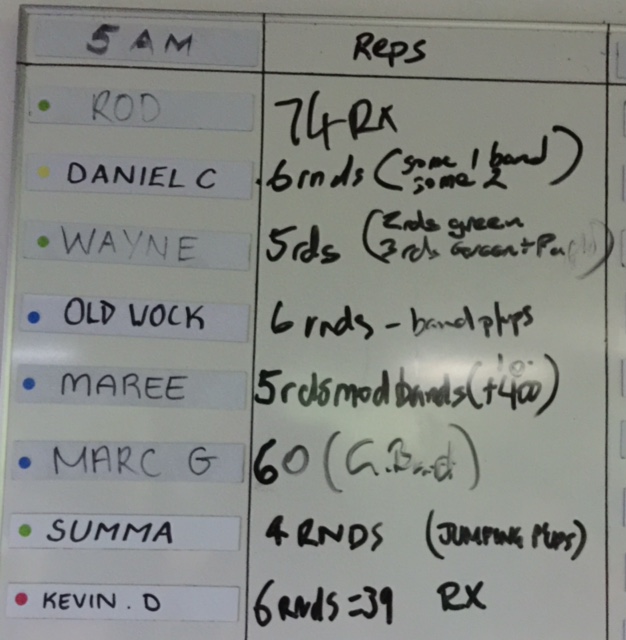 5 AM Reps
ROD 74 RX
DANIEL C 6 rnds (some 1 band
some 2)
WAYNE 5 rds (2 rds green
3 rds Green +
OLD WOCK 6 rnds - band plups
MAREE 5 rds mod bands (+400)
MARC G 60 (G. Band)
SUMMA 4 RNDS (JUMPING PUPS)
KEVIN. D 6 Rnds = 39 RX